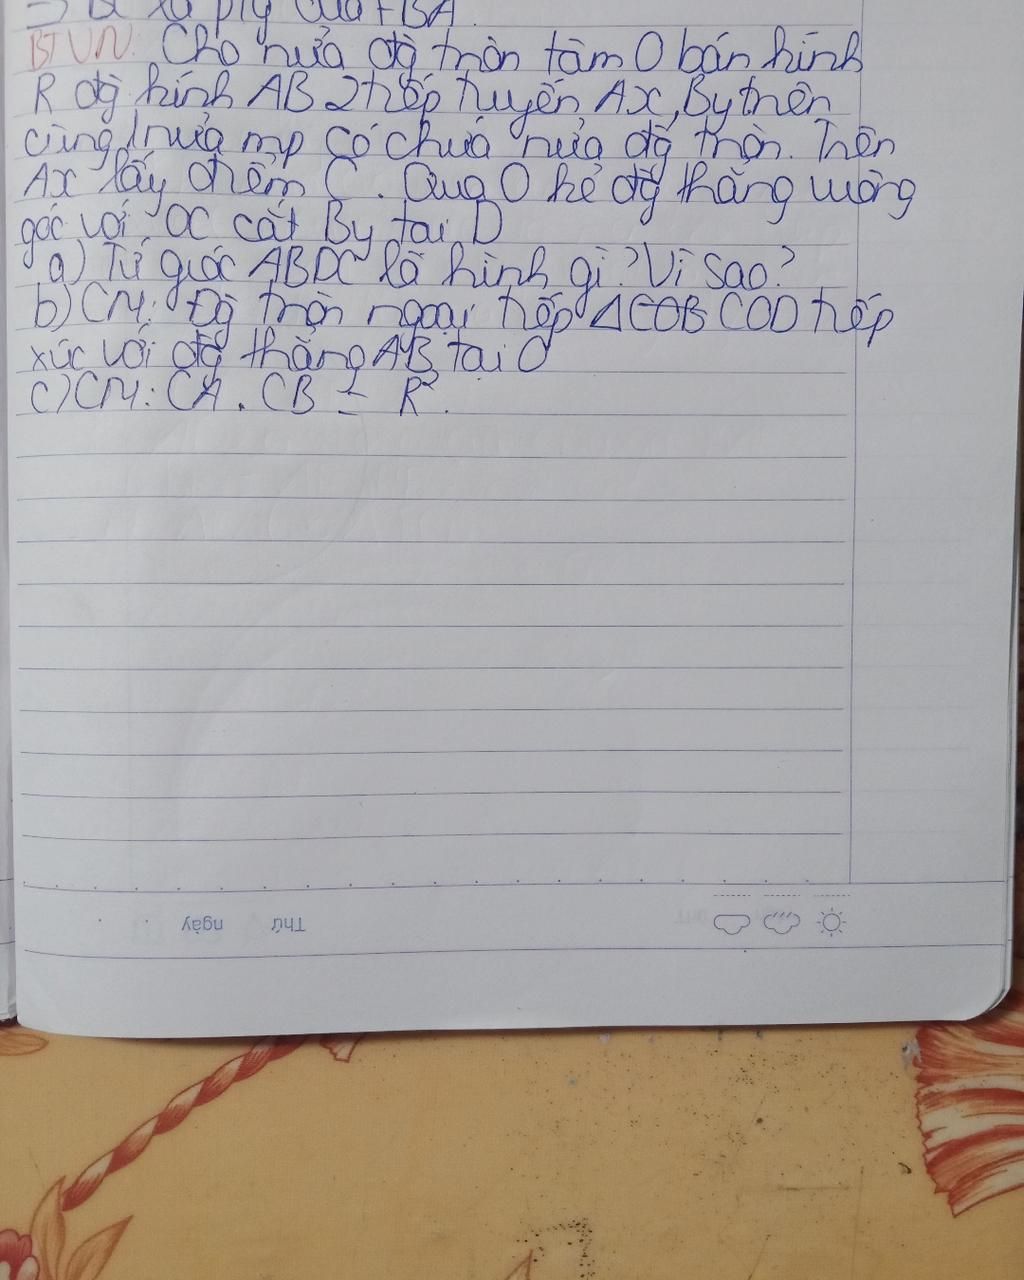 ⇒ là của FBA.
BTVN: Cho nửa đg tròn tâm O bán kính
R đg kính AB 2 tiếp tuyến Ax, By trên
cùng 1 nửa mp có chứa nửa đg tròn. Trên
Ax lấy điểm C. Qua O kẻ đg thẳng vuông
góc với OC cắt By tại D
a) Tứ giác ABDC là hình gì? Vì sao?
b) CM: Đg tròn ngoại tiếp Δ COD tiếp
xúc với đg thẳng AB tại O
c) CM: CA . CB = R².
Thứ ngày